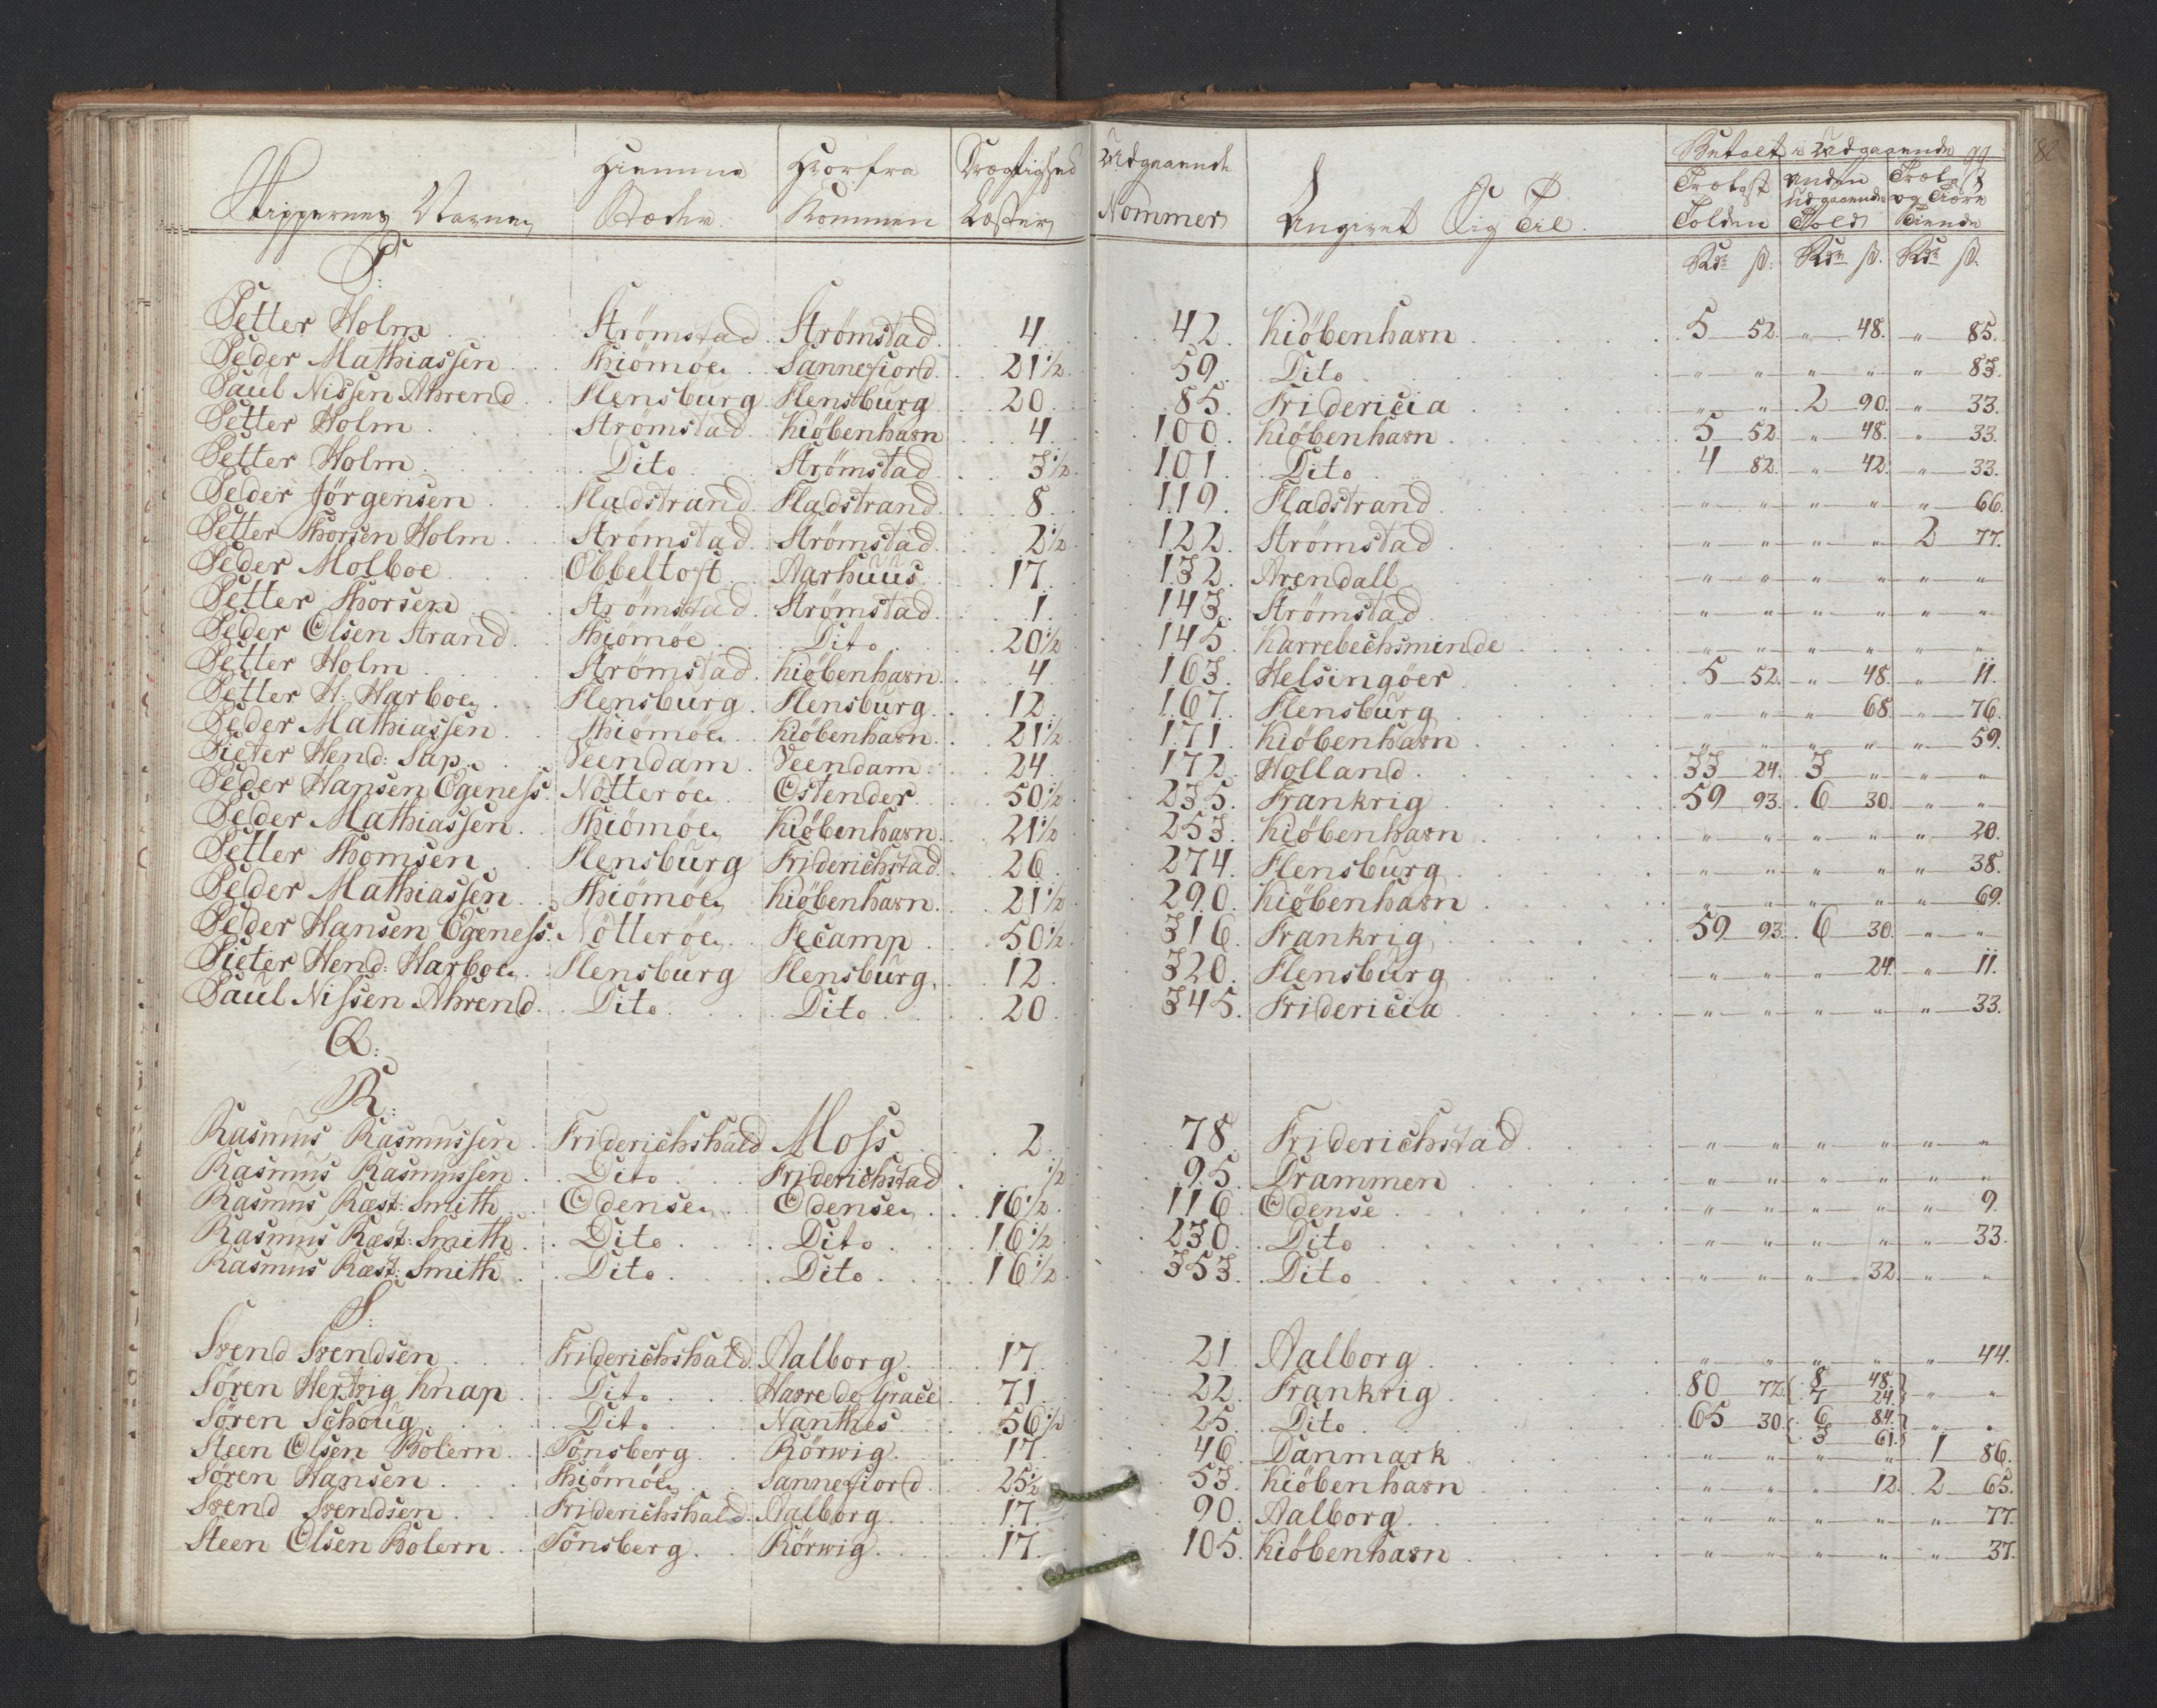 Skippernes Navne Hiemme Stæder Hvorfra Kommen Drægtighed Læster Udgaaende Nommer Angivet Sig Til Betalt i Udgaaende
Trælast Tolden Anden Udgaaende Told Trælast og Tiære Tiende
Rdr ß: Rdr ß. Rdr ß.
P:
Petter Holm Strömstad Strömstad 4 42. Kiöbenhavn 5 52. " 48. " 85.
Peder Mathiassen Thiömöe Sannefiord 21 1/2 59. Dito " " " " " 83.
Paul Nissen Ahrend Flensburg Flensburg 20 85. Fridericia " " 2 90. " 33.
Petter Holm Strömstad Kiöbenhavn 4 100. Kiöbenhavn 5 52. " 48. " 33.
Petter Holm Dito Strömstad 3 1/2 101. Dito 4 82. " 42. " 33.
Peder Jörgensen Fladstrand Fladstrand 8 119. Fladstrand " " " " " 66.
Petter Thorsen Holm Strömstad Strömstad 2 1/2 122. Strömstad " " " " 2 77.
Peder Molboe Ebbeltoft Aarhuus 17 132. Arendall " " " " " "
Petter Thorsen Strömstad Strömstad 1 143. Strömstad " " " " " "
Peder Olsen Strand Thiömöe Dito 20 1/2 145 Karrebechsminde " " " " " "
Petter Holm Strömstad Kiöbenhavn 4 163. Helsingöer 5 52. " 48. " 11.
Petter H: Harboe Flensburg Flensburg 12 167. Flensburg " " " 68. " 76.
Peder Mathiassen Thiömöe Kiöbenhavn 21 1/2 171. Kiöbenhavn " " " " " 59.
Pieter Hend: Sap Veendam Veendam 24 172. Holland 33 24. 3 " " "
Peder Hansen Egeness Nötteröe Ostender 50 1/2 235. Frankrig 59 93. 6 30. " "
Peder Mathiassen Thiömöe Kiöbenhavn 21 1/2 253. Kiöbenhavn " " " " " 20.
Petter Thomsen Flensburg Friderichstad 26 274. Flensburg " " " " " 38.
Peder Mathiassen Thiömöe Kiöbenhavn 21 1/2 290. Kiöbenhavn " " " " " 69.
Peder Hansen Egeness Nötteröe Fecamp 50 1/2 316. Frankrig 59 93. 6 30. " "
Pieter Hend: Harboe Flensburg Flensburg 12 320. Flensburg " " " 24. " 11.
Paul Nissen Ahrend Dito Dito 20 345. Fridericia " " " " " 33.
Q:
R:
Rasmus Rasmussen Friderichshald Moss 2 78. Friderichstad " " " " " "
Rasmus Rasmussen Dito Friderichstad 1/2 95. Drammen " " " " " "
Rasmus Ræst: Smith Odense Odense 16 1/2 116. Odense " " " " " 9.
Rasmus Ræst: Smith Dito Dito 16 1/2 230. Dito " " " " " 33.
Rasmus Ræst: Smith Dito Dito 16 1/2 353. Dito " " " 32. " "
S:
Svend Svendsen Friderichshald Aalborg 17 21. Aalborg " " " " " 44.
Sören Hertvig Knap Dito Havre de Grace 71 22. Frankrig 80 72. 8 48. " "
7 24.
Sören Schoug Dito Nanthes 56 1/2 25. Dito 65 30. 6 84. " "
3 61.
Steen Olsen Bolern Tönsberg Rörwig 17 46. Danmark " " " " 1 86.
Sören Hansen Thiömöe Sannefiord 25 1/2 53. Kiöbenhavn " " " 12. 2 65.
Svend Svendsen Friderichshald Aalborg 17 90. Aalborg " " " " " 77.
Steen Olsen Bolern Tönsberg Rörwig 17 105. Kiöbenhavn " " " " " 37.